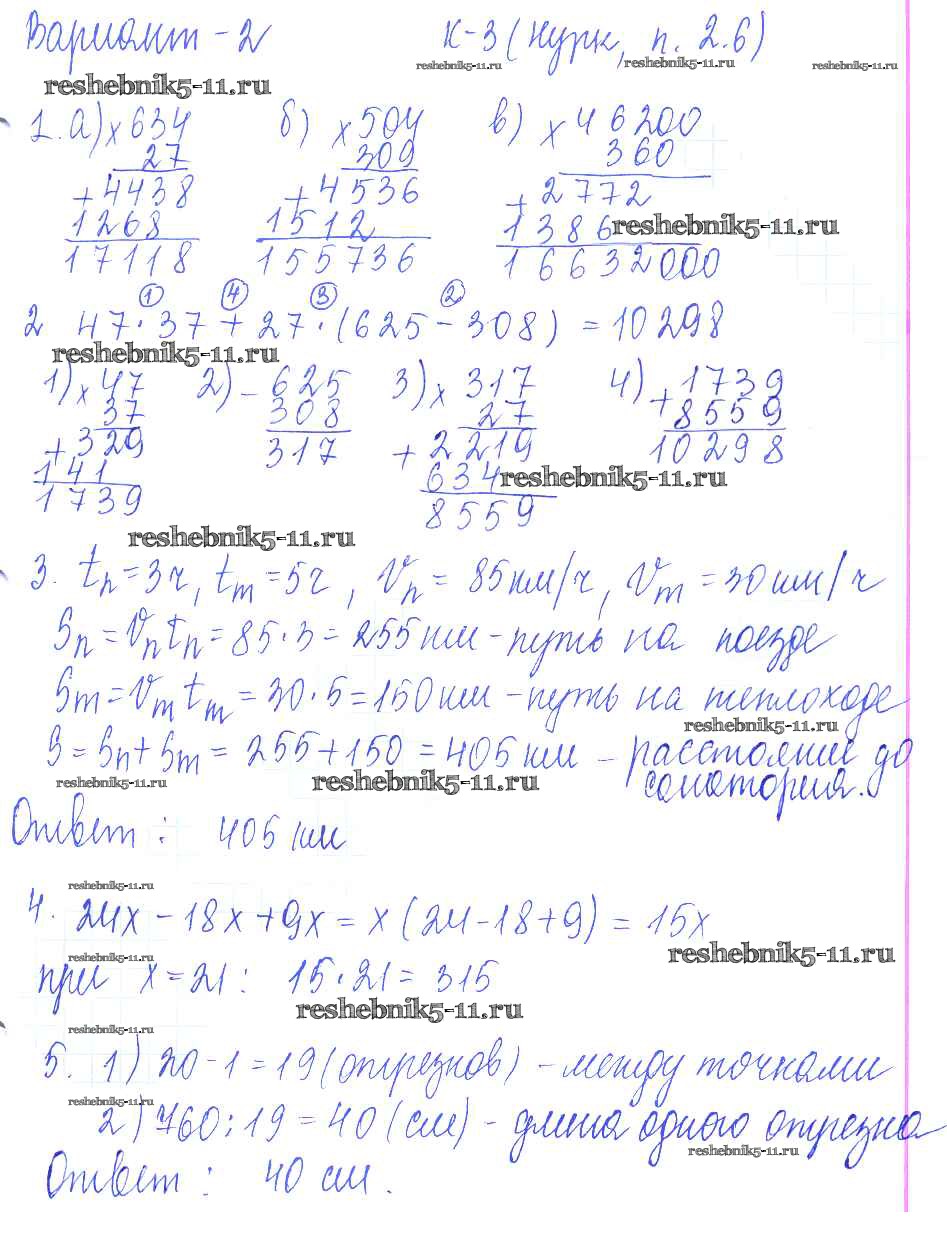 Вариант - 2 К-3 (Нурк, п. 2.6)
reshebnik5-11.ru reshebnik5-11.ru reshebnik5-11.ru
reshebnik5-11.ru
1. а) x 634 б) x 504 в) x 46200
27 309 360
+ 4438 + 4536 + 2772
1268 1512 1386 reshebnik5-11.ru
17118 155736 16632000
1 4 3 2
2 47 · 37 + 27 · (625 - 308) = 10298
reshebnik5-11.ru
1) x 47 2) - 625 3) x 317 4) + 1739
37 308 27 8559
+ 329 317 + 2219 10298
141 634 reshebnik5-11.ru
1739 8559
reshebnik5-11.ru
3. tп = 3ч, tт = 5ч, Vп = 85 км/ч, Vт = 30 км/ч
Sп = Vп tп = 85 · 3 = 255 км - путь на поезде
Sт = Vт tт = 30 · 5 = 150 км - путь на теплоходе
reshebnik5-11.ru
S = Sп + Sт = 255 + 150 = 405 км - расстояние до
reshebnik5-11.ru reshebnik5-11.ru санатория.
Ответ: 405 км
reshebnik5-11.ru
4. 24x - 18x + 9x = x (24 - 18 + 9) = 15x
reshebnik5-11.ru reshebnik5-11.ru
при x = 21: 15 · 21 = 315
reshebnik5-11.ru
reshebnik5-11.ru
5. 1) 20 - 1 = 19 (отрезков) - между точками
reshebnik5-11.ru
2) 760 : 19 = 40 (см) - длина одного отрезка
reshebnik5-11.ru
Ответ: 40 см.